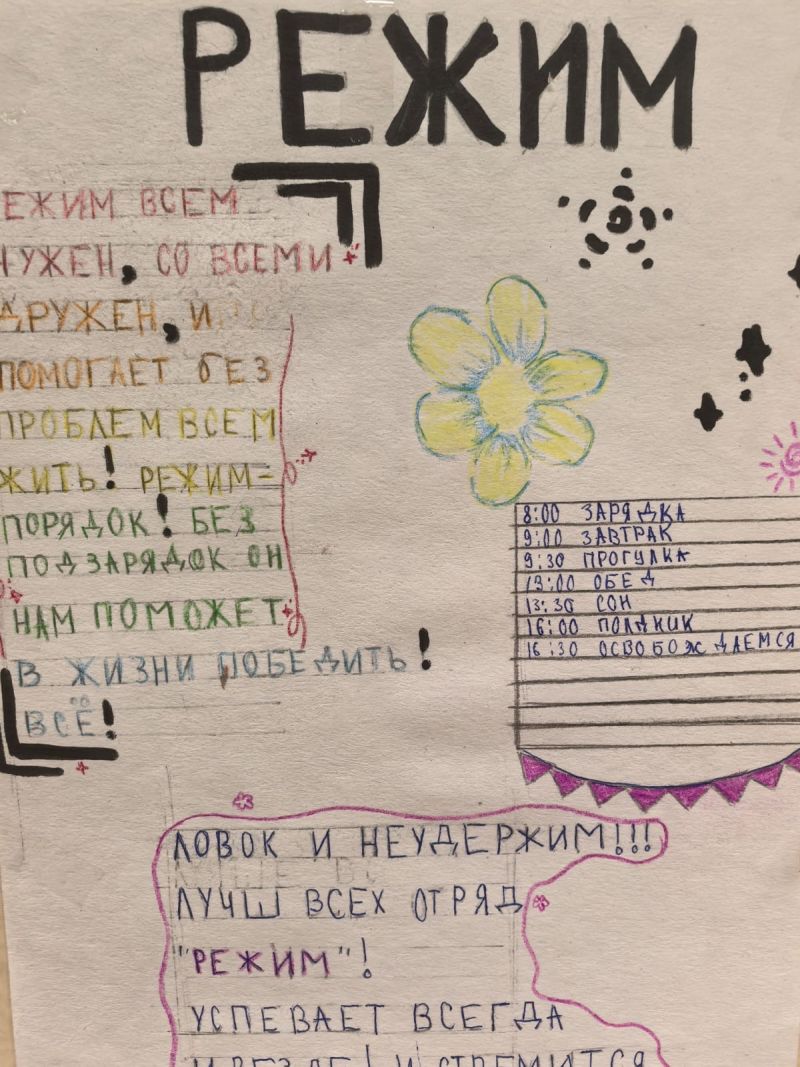 РЕЖИМ
ЕЖИМ ВСЕМ
НУЖЕН, СО ВСЕМИ
ДРУЖЕН, И
ПОМОГАЕТ БЕЗ
ПРОБЛЕМ ВСЕМ
ЖИТЬ! РЕЖИМ=
ПОРЯДОК! БЕЗ
ПОДЗАРЯДОК ОН
НАМ ПОМОЖЕТ
В ЖИЗНИ ПОБЕДИТЬ!
ВСЁ!
8:00 ЗАРЯДКА
9:00 ЗАВТРАК
9:30 ПРОГУЛКА
13:00 ОБЕД
13:30 СОН
16:00 ПОЛДНИК
16:30 ОСВОБОЖДАЕМСЯ
ЛОВОК И НЕУДЕРЖИМ!!!
ЛУЧШ ВСЕХ ОТРЯД
"РЕЖИМ"!
УСПЕВАЕТ ВСЕГДА
И ВЕЗДЕ! И СТРЕМИТСЯ